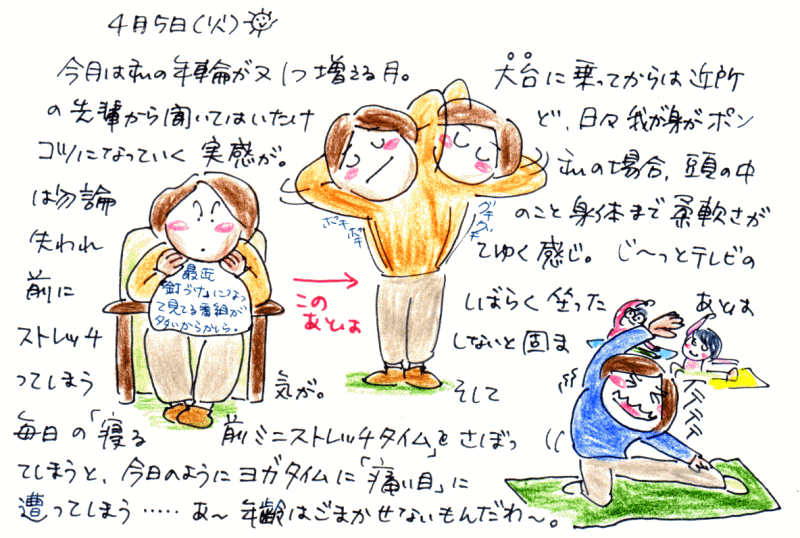 4月5日(火)
今月は私の年輪が又1つ増える月。 大台に乗ってからは近所
の先輩から聞いてはいたけ ど、日々我が身がポン
コツになっていく実感が。 私の場合、頭の中
は勿論 のこと身体まで柔軟さが
失われ てゆく感じ。じ〜っとテレビの
前に しばらく坐った あとは
ストレッチ しないと固ま
ってしまう 気が。 そして
毎日の「寝る 前ミニストレッチタイム」をさぼっ
てしまうと、今日のようにヨガタイムに「痛い目」に
遭ってしまう……あ〜年齢はごまかせないもんだわ〜。
最近
「釘づけ」になっ
て見てる番組が
多いからかしら。
この
あとは
ボキ
ボキ
グキ
グキ
テテテテ